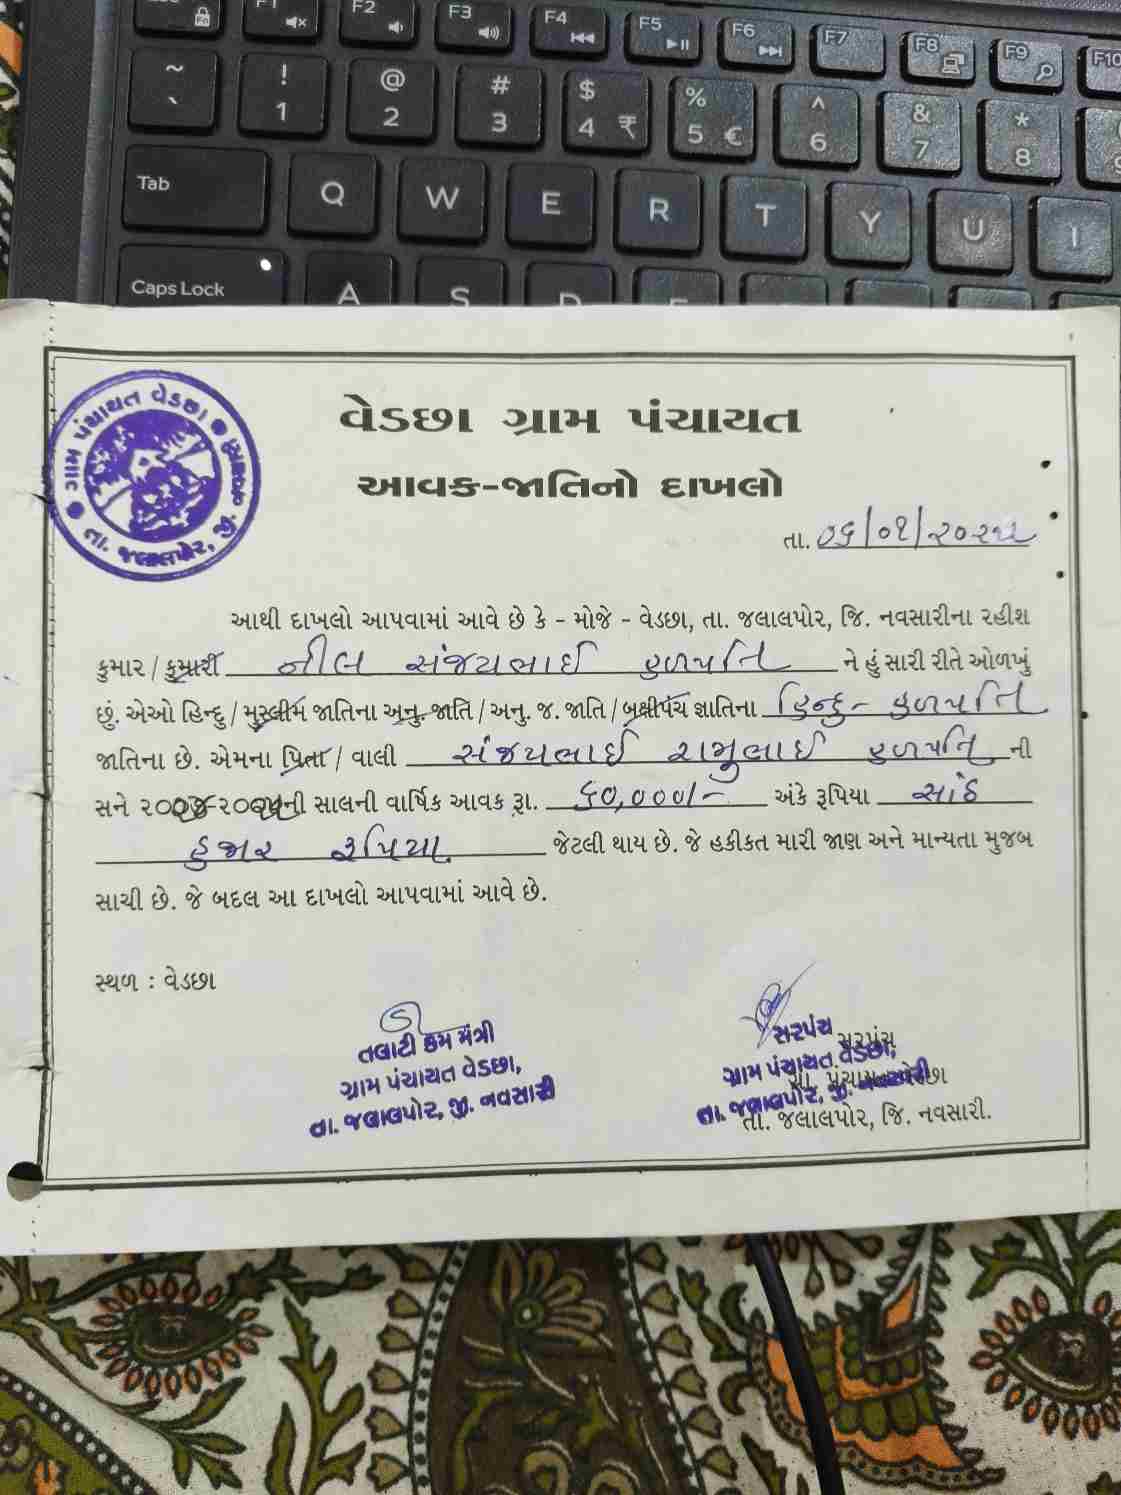 F1 F2 F3 F4 F5 F6 F7 F8 F9 F10
~ ! @ # $ % ^ & *
` 1 2 3 4 ₹ 5 € 6 7 8
Tab Q W E R T Y U I
Caps Lock A S D F
ગ્રામ પંચાયત વેડછા
તા. જલાલપોર, જી. નવસારી
વેડછા ગ્રામ પંચાયત
આવક-જાતિનો દાખલો
તા. ૦૬/૦૧/૨૦૨૫
આથી દાખલો આપવામાં આવે છે કે - મોજે - વેડછા, તા. જલાલપોર, જિ. નવસારીના રહીશ
કુમાર / કુમારી નીલ સંજયભાઈ હળપતિ ને હું સારી રીતે ઓળખું
છું. એઓ હિન્દુ / મુસ્લીમ જાતિના અનુ. જાતિ / અનુ. જ. જાતિ / બક્ષીપંચ જ્ઞાતિના હિન્દુ - હળપતિ
જાતિના છે. એમના પિતા / વાલી સંજયભાઈ રામુભાઈ હળપતિ ની
સને ૨૦૨૪-૨૦૨૫ની સાલની વાર્ષિક આવક રૂા. ૬૦,૦૦૦/- અંકે રૂપિયા સાઠ
હજાર રૂપિયા જેટલી થાય છે. જે હકીકત મારી જાણ અને માન્યતા મુજબ
સાચી છે. જે બદલ આ દાખલો આપવામાં આવે છે.
સ્થળ : વેડછા
તલાટી કમ મંત્રી
ગ્રામ પંચાયત વેડછા,
તા. જલાલપોર, જી. નવસારી
સરપંચ
ગ્રામ પંચાયત વેડછા,
તા. જલાલપોર, જી. નવસારી
સરપંચ
ગ્રા. પંચાયત વેડછા
તા. જલાલપોર, જિ. નવસારી.